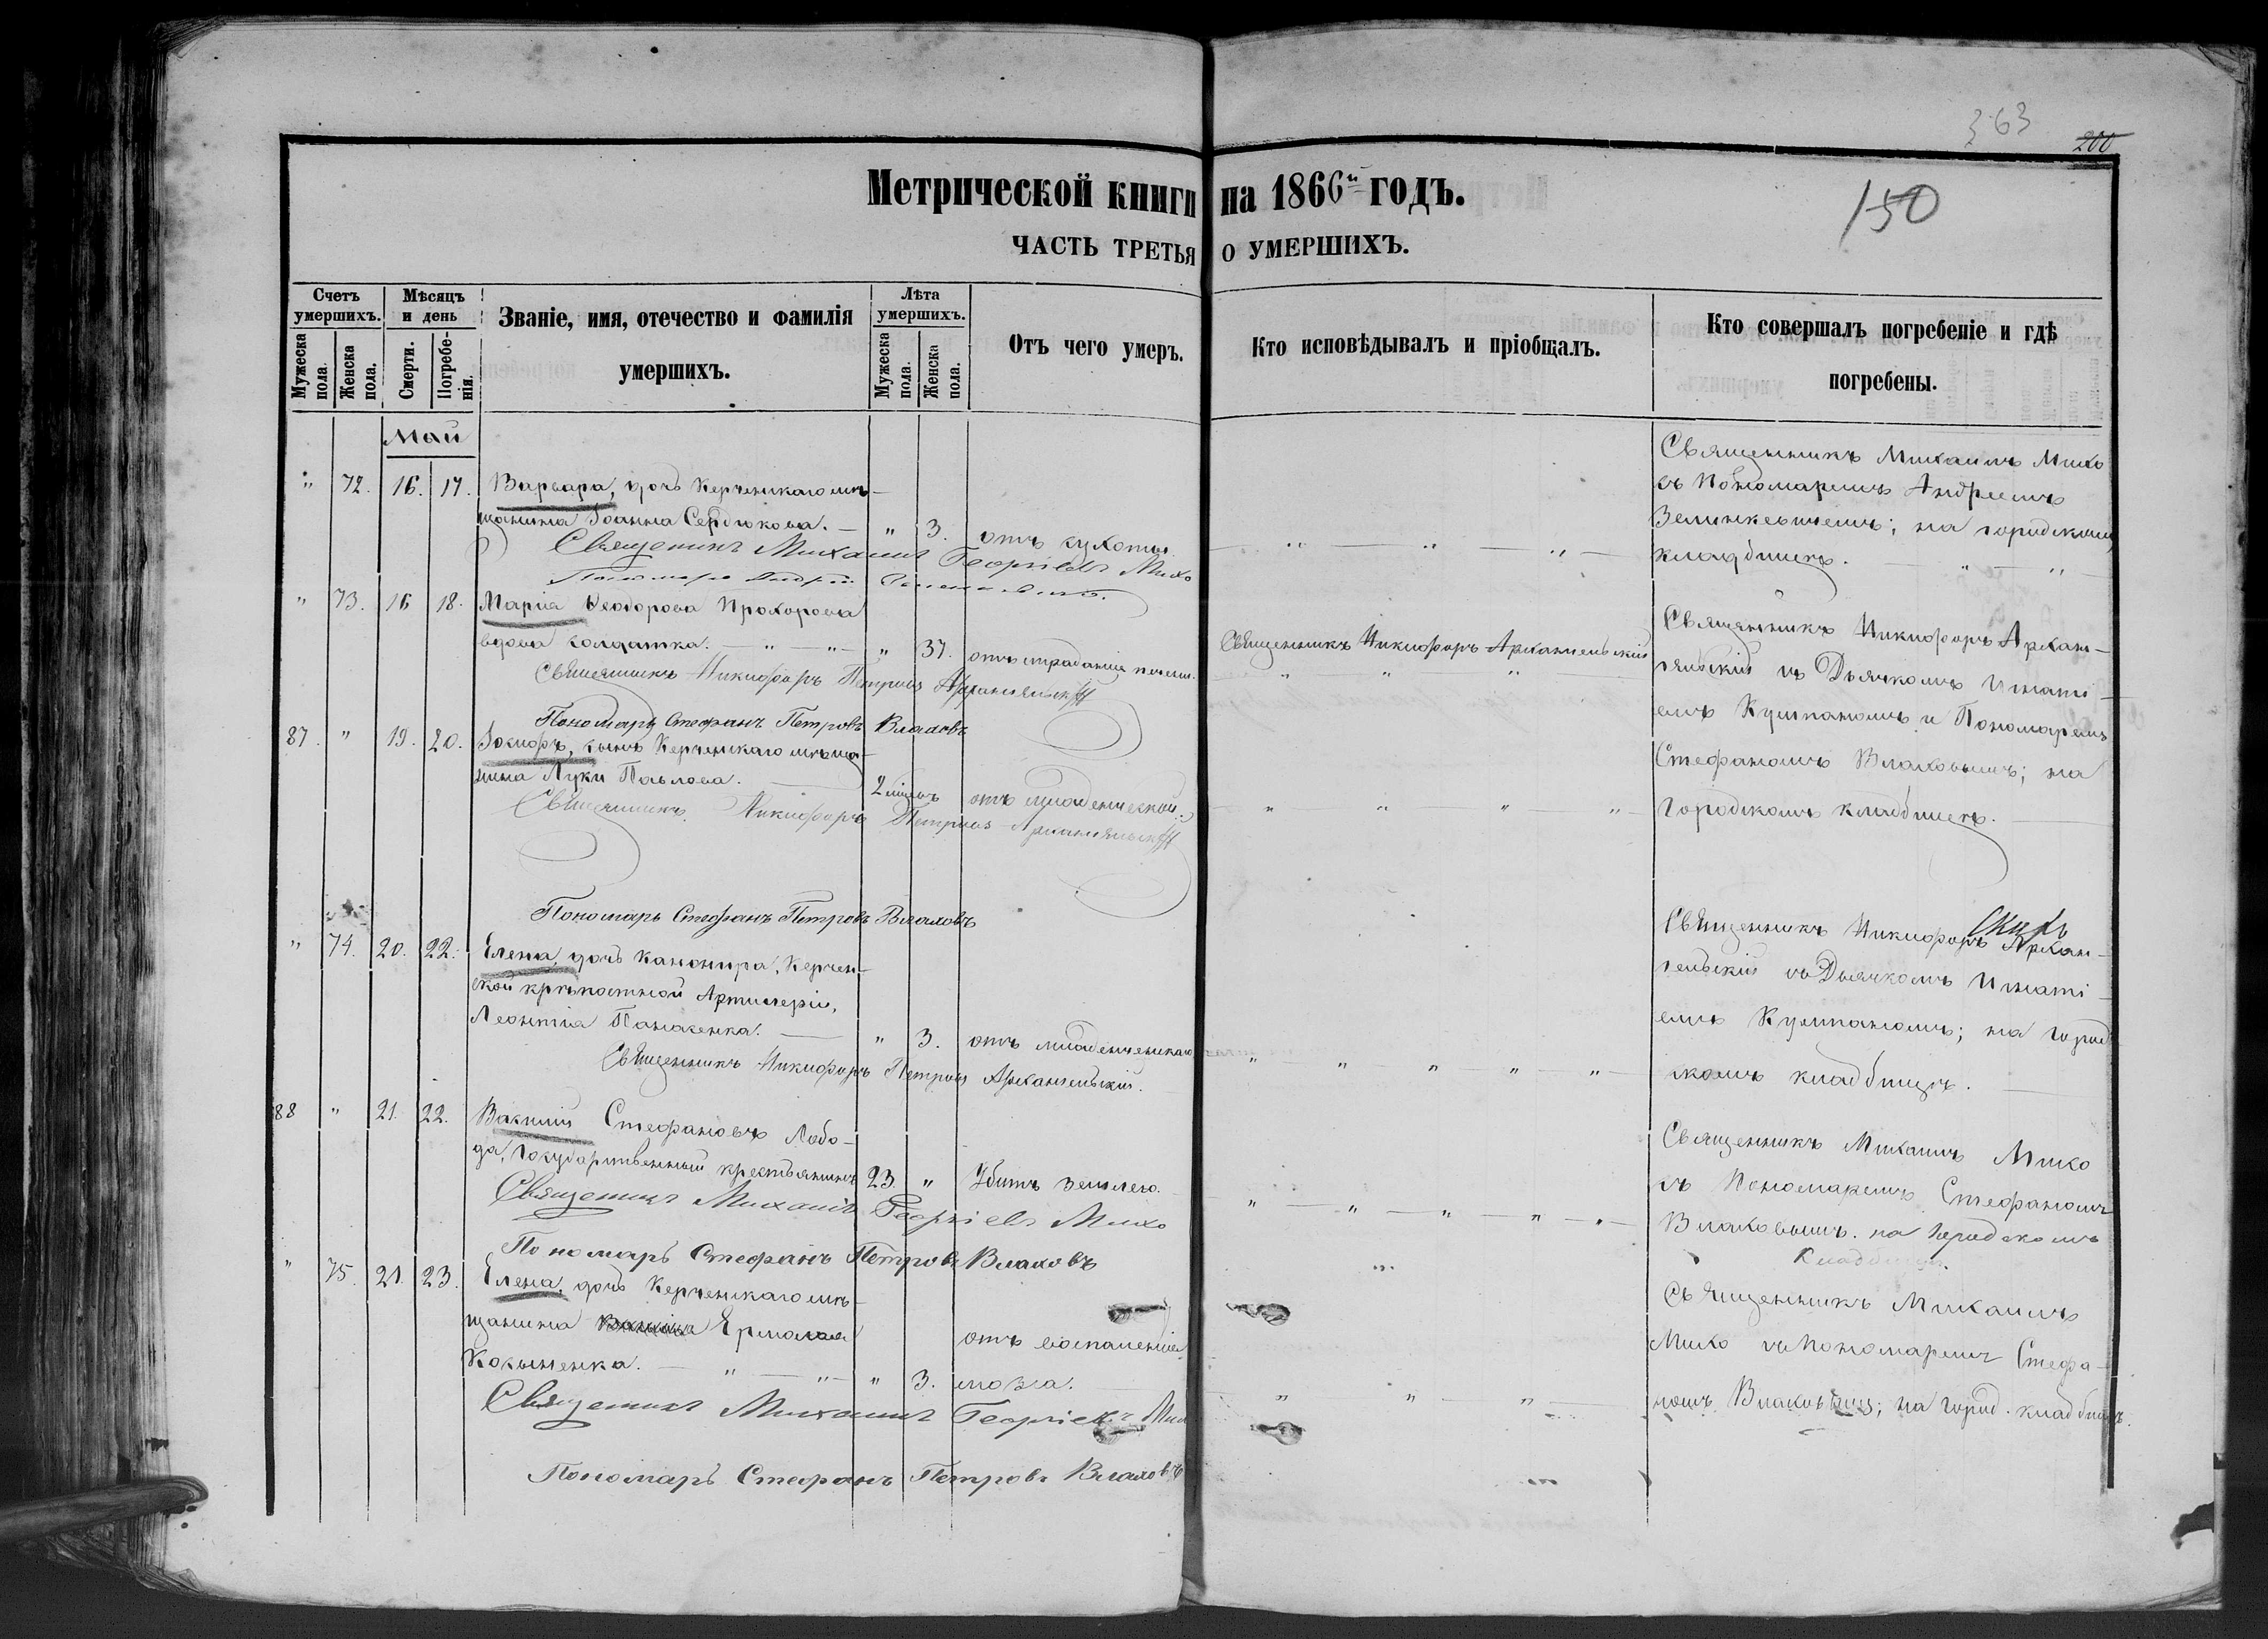 363
200
150
Метрической книги на 1866й годъ.
ЧАСТЬ ТРЕТЬЯ О УМЕРШИХЪ.
Счетъ умершихъ.
Мужеска пола.
Женска пола.
Мѣсяцъ и день
Смерти.
Погребенія.
Званіе, имя, отечество и фамилія умершихъ.
Лѣта умершихъ.
Мужеска пола.
Женска пола.
Отъ чего умеръ.
Кто исповѣдывалъ и пріобщалъ.
Кто совершалъ погребеніе и гдѣ погребены.
Май
" 72. 16. 17. Варвара, дочь Керченскаго мѣ-
щанина Іоанна Сердюкова. — " 3. отъ сухоты.
Священникъ Михаилъ Георгіевъ Михо
Пономарь Андрей
Священникъ Михаилъ Михо
съ Пономаремъ Андреемъ
Зелинкевичемъ; на городскомъ
кладбищѣ.
" 73. 16 18. Марія Ѳеодорова Прохорова
вдова солдатка. — " — " — " 37. отъ страданія печени.
Священникъ Никифоръ Петровъ Архангельскій
Пономарь Стефанъ Петровъ Влаховъ
Священникъ Никифоръ Архангельскій
Священникъ Никифоръ Архан-
гельскій съ Дьячкомъ Игнаті-
емъ Культаномъ и Пономаремъ
Стефаномъ Влаховымъ; на
городскомъ кладбищѣ.
87. " 19. 20. Іосифъ, сынъ Керченскаго мѣща-
нина Луки Павлова. — 2 мѣсяц. отъ младенческой.
Священникъ Никифоръ Петровъ Архангельскій
Пономарь Стефанъ Петровъ Влаховъ
" 74. 20. 22. Елена, дочь Канонира, Керчен-
ской крѣпостной Артилеріи,
Леонтія Панасенка. — " 3. отъ младенческаго
Священникъ Никифоръ Петровъ Архангельскій.
Священникъ Никифоръ Архан-
гельскій съ Дьячкомъ Игнаті-
емъ Культаномъ; на город-
скомъ кладбищѣ.
88 " 21. 22. Василій Стефановъ Лобо-
да, Государственный крестьянинъ 23. " Убитъ землею.
Священникъ Михаилъ Георгіевъ Михо
Пономарь Стефанъ Петровъ Влаховъ
Священникъ Михаилъ Михо
съ Пономаремъ Стефаномъ
Влаховымъ. на Городскомъ
Кладбищѣ.
" 75. 21. 23. Елена, дочь Керченскаго мѣ-
щанина Ермолая
Косыненка. — " — " — " 3. отъ воспаленія
мозга.
Священникъ Михаилъ Георгіевъ Мих
Пономарь Стефанъ Петровъ Влаховъ
Священникъ Михаилъ
Михо съ Пономаремъ Стефа-
номъ Влаховымъ; на город. кладбищѣ.